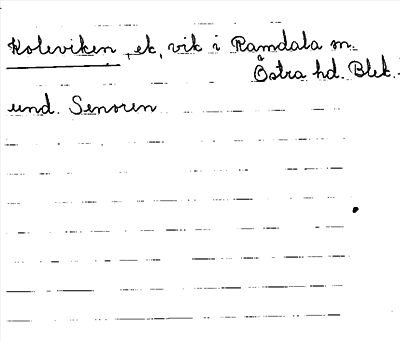 Koleviken, ek, vik i Ramdala sn.
Östra hd. Blek.
und. Senoren